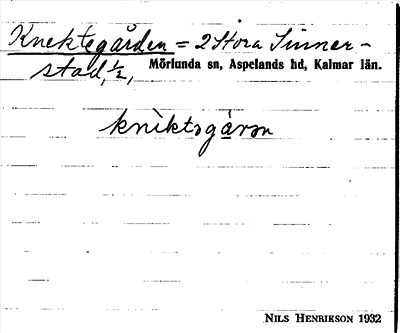 Knektegården = 2 Stora Sinner-
stad, 1/2, Mörlunda sn, Aspelands hd, Kalmar län.
knìktsgàrɷn
Nils Henrikson 1932